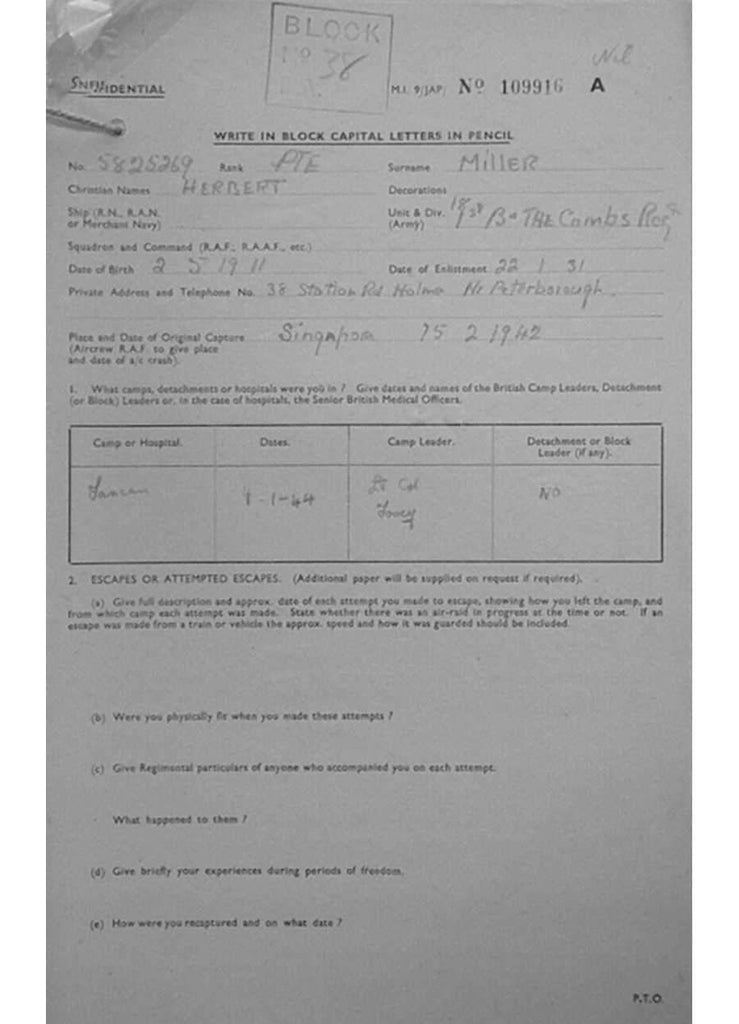 BLOCK
No 38
Nil
CONFIDENTIAL
M.I. 9/JAP/ No 109916 A
WRITE IN BLOCK CAPITAL LETTERS IN PENCIL
No. 5825269 Rank PTE Surname MillER
Christian Names HERBERT Decorations
Ship (R.N., R.A.N. or Merchant Navy)
Unit & Div. (Army) 1st Bn THE Cambs Regt
Squadron and Command (R.A.F., R.A.A.F., etc.)
Date of Birth 2 5 1911 Date of Enlistment 22 1 31
Private Address and Telephone No. 38 Station Rd Holme Nr Peterborough.
Place and Date of Original Capture Singapore 15 2 1942
(Aircrew R.A.F. to give place
and date of a/c crash).
1. What camps, detachments or hospitals were you in ? Give dates and names of the British Camp Leaders, Detachment
(or Block) Leaders or, in the case of hospitals, the Senior British Medical Officers.
Camp or Hospital. Dates. Camp Leader. Detachment or Block
Leader (if any).
1-1-44 Lt Col NO
2. ESCAPES OR ATTEMPTED ESCAPES. (Additional paper will be supplied on request if required).
(a) Give full description and approx. date of each attempt you made to escape, showing how you left the camp, and
from which camp each attempt was made. State whether there was an air-raid in progress at the time or not. If an
escape was made from a train or vehicle the approx. speed and how it was guarded should be included.
(b) Were you physically fit when you made these attempts ?
(c) Give Regimental particulars of anyone who accompanied you on each attempt.
What happened to them ?
(d) Give briefly your experiences during periods of freedom.
(e) How were you recaptured and on what date ?
P.T.O.